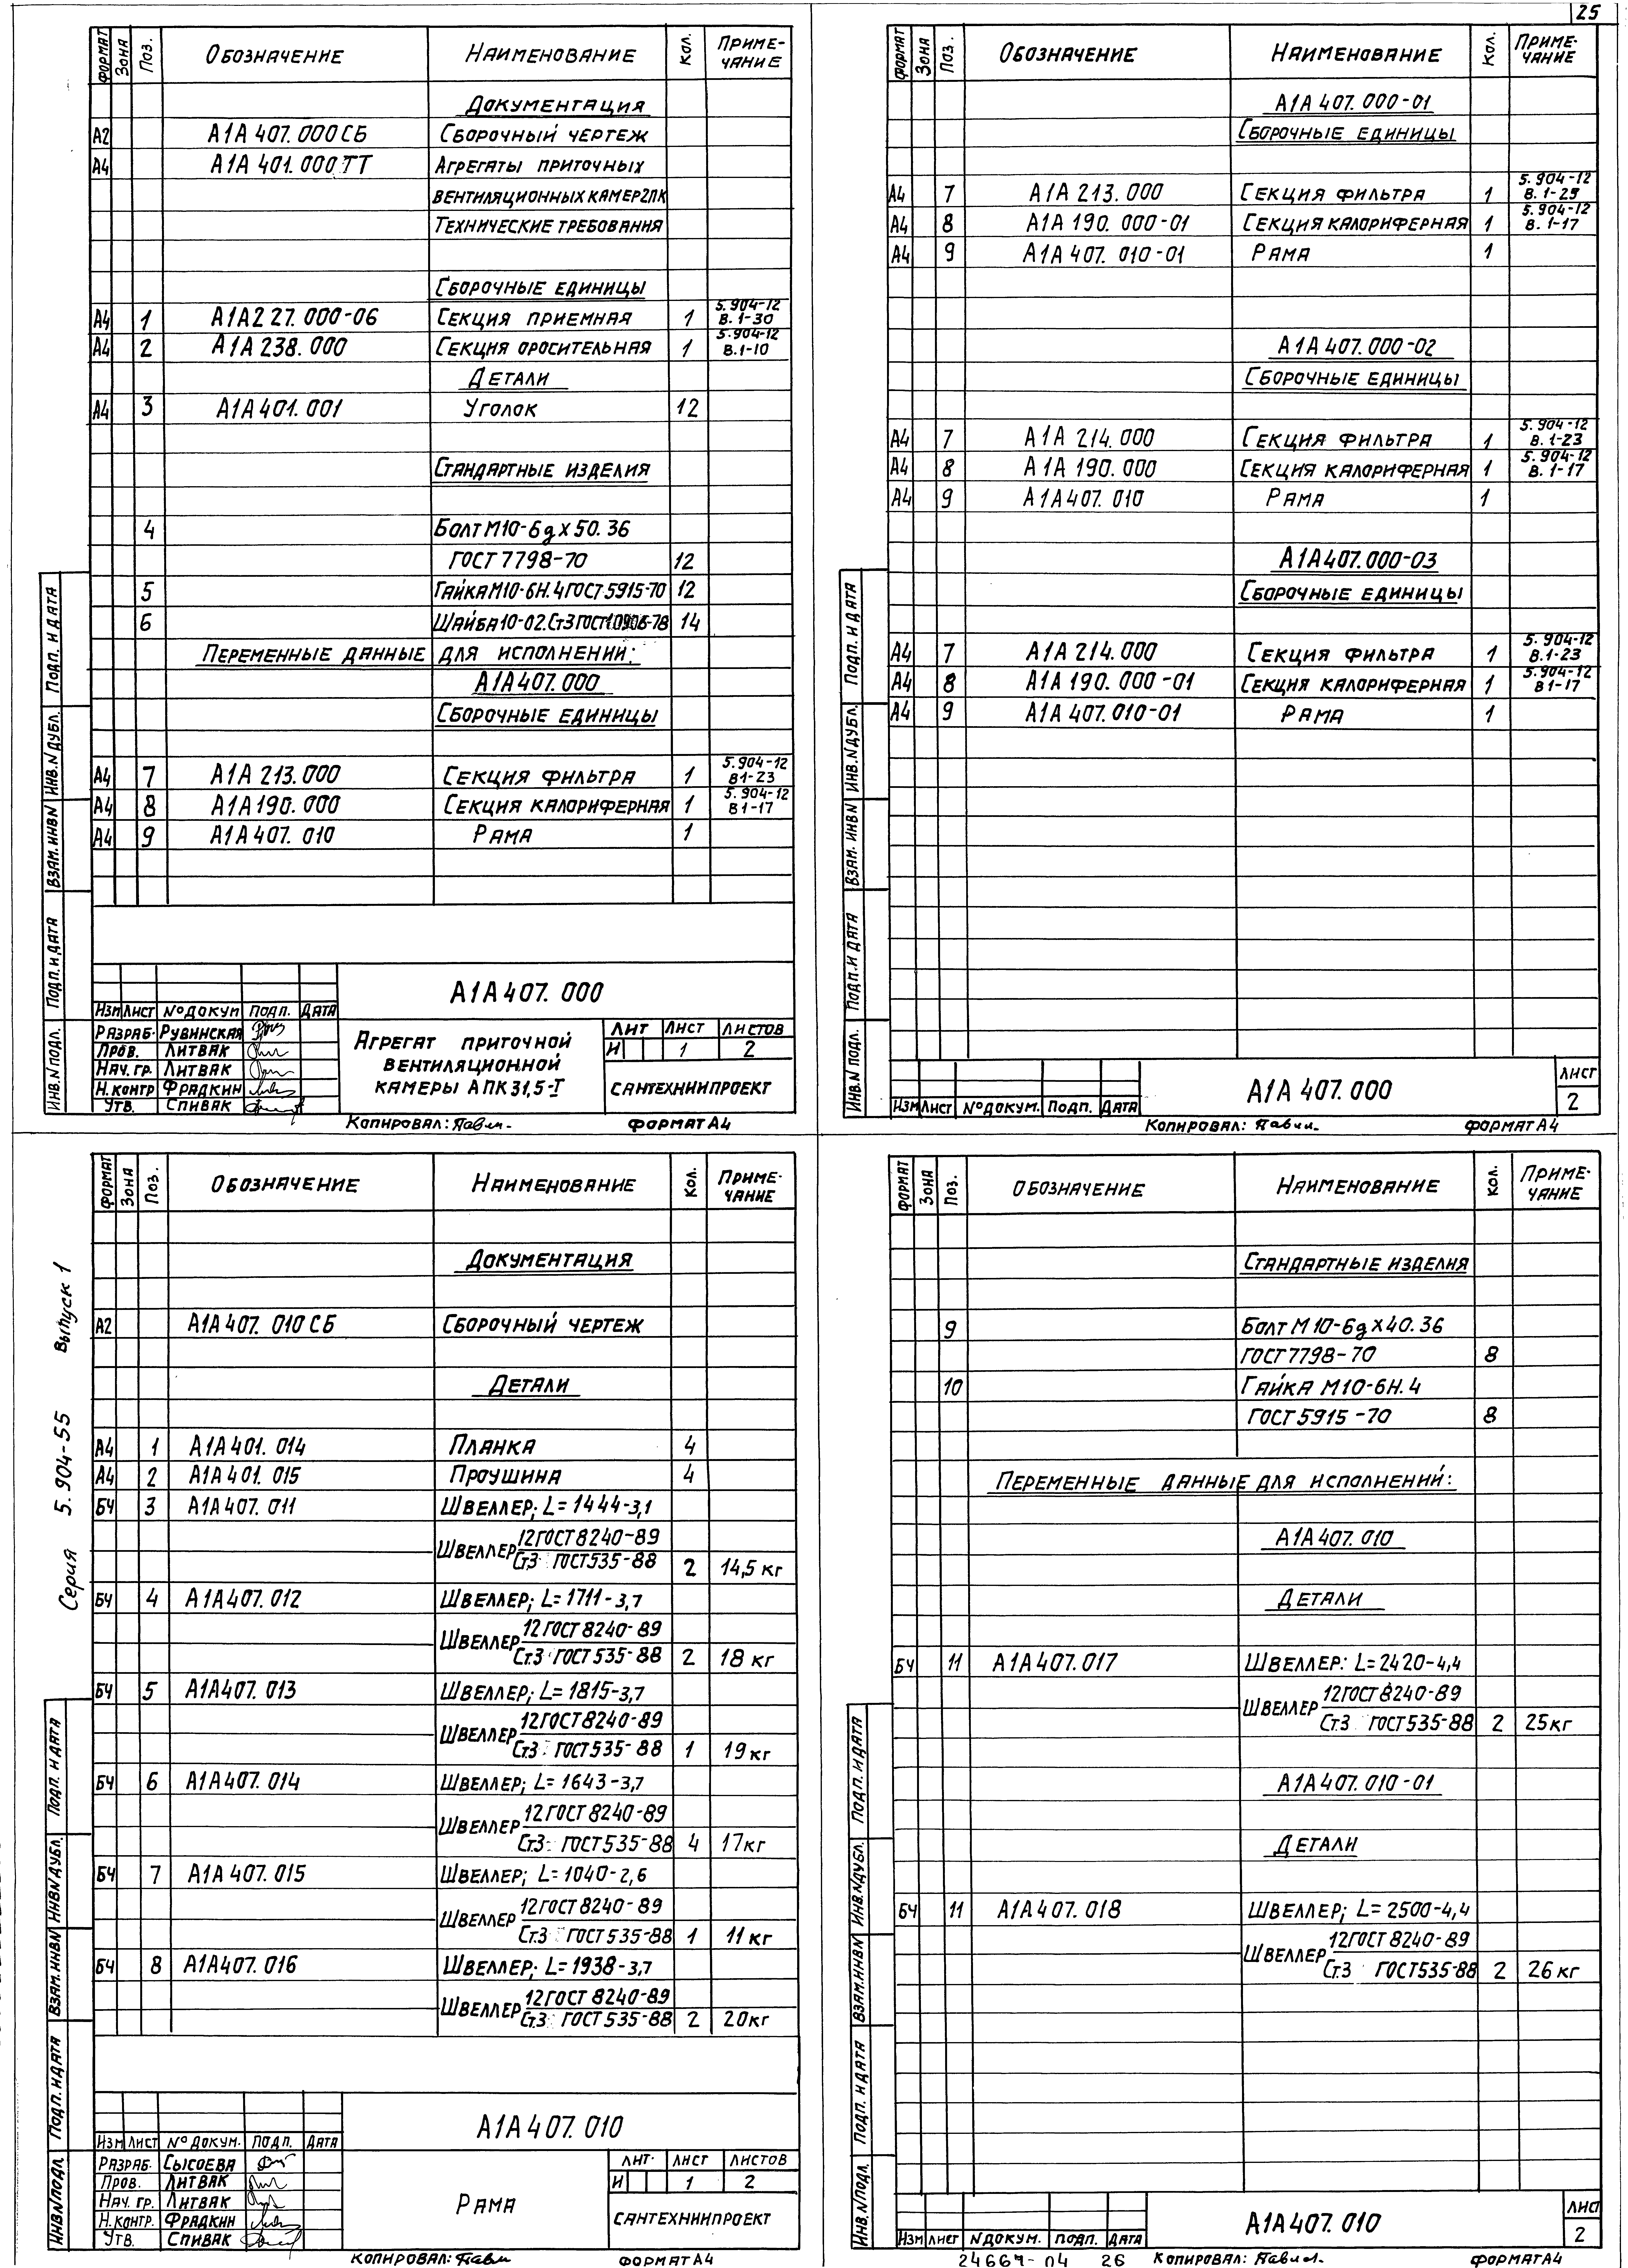 25
ФОРМАТ ЗОНА ПОЗ. ОБОЗНАЧЕНИЕ НАИМЕНОВАНИЕ КОЛ. ПРИМЕ-
ЧАНИЕ
ДОКУМЕНТАЦИЯ
А2 А1А 407.000 СБ СБОРОЧНЫЙ ЧЕРТЕЖ
А4 А1А 401.000 ТТ АГРЕГАТЫ ПРИТОЧНЫХ
ВЕНТИЛЯЦИОННЫХ КАМЕР 2ПК
ТЕХНИЧЕСКИЕ ТРЕБОВАНИЯ
СБОРОЧНЫЕ ЕДИНИЦЫ
А4 1 А1А227.000-06 СЕКЦИЯ ПРИЕМНАЯ 1 5.904-12
В.1-30
А4 2 А1А 238.000 СЕКЦИЯ ОРОСИТЕЛЬНАЯ 1 5.904-12
В.1-10
ДЕТАЛИ
А4 3 А1А401.001 УГОЛОК 12
СТАНДАРТНЫЕ ИЗДЕЛИЯ
4 БОЛТ М10-6g×50.36
ГОСТ 7798-70 12
5 ГАЙКА М10-6Н.4 ГОСТ 5915-70 12
6 ШАЙБА 10-02.Ст3 ГОСТ 10906-78 14
ПЕРЕМЕННЫЕ ДАННЫЕ ДЛЯ ИСПОЛНЕНИЙ:
А1А407.000
СБОРОЧНЫЕ ЕДИНИЦЫ
А4 7 А1А 213.000 СЕКЦИЯ ФИЛЬТРА 1 5.904-12
В1-23
А4 8 А1А190.000 СЕКЦИЯ КАЛОРИФЕРНАЯ 1 5.904-12
В1-17
А4 9 А1А 407.010 РАМА 1
А1А407.000
ИЗМ ЛИСТ № ДОКУМ ПОДП. ДАТА
РАЗРАБ. РУВИНСКАЯ
ПРОВ. ЛИТВАК
НАЧ. ГР. ЛИТВАК
Н.КОНТР ФРАДКИН
УТВ. СПИВАК
АГРЕГАТ ПРИТОЧНОЙ
ВЕНТИЛЯЦИОННОЙ
КАМЕРЫ АПК31,5-I
ЛИТ ЛИСТ ЛИСТОВ
И 1 2
САНТЕХНИИПРОЕКТ
ИНВ.N ПОДЛ. ПОДП. И ДАТА ВЗАМ. ИНВ N ИНВ.N ДУБЛ. ПОДП. И ДАТА
КОПИРОВАЛ: ФОРМАТ А4
ФОРМАТ ЗОНА ПОЗ. ОБОЗНАЧЕНИЕ НАИМЕНОВАНИЕ КОЛ. ПРИМЕ-
ЧАНИЕ
А1А 407.000-01
СБОРОЧНЫЕ ЕДИНИЦЫ
А4 7 А1А 213.000 СЕКЦИЯ ФИЛЬТРА 1 5.904-12
В.1-23
А4 8 А1А 190.000-01 СЕКЦИЯ КАЛОРИФЕРНАЯ 1 5.904-12
В.1-17
А4 9 А1А 407.010-01 РАМА 1
А1А 407.000-02
СБОРОЧНЫЕ ЕДИНИЦЫ
А4 7 А1А 214.000 СЕКЦИЯ ФИЛЬТРА 1 5.904-12
В.1-23
А4 8 А1А 190.000 СЕКЦИЯ КАЛОРИФЕРНАЯ 1 5.904-12
В.1-17
А4 9 А1А407.010 РАМА 1
А1А407.000-03
СБОРОЧНЫЕ ЕДИНИЦЫ
А4 7 А1А 214.000 СЕКЦИЯ ФИЛЬТРА 1 5.904-12
В.1-23
А4 8 А1А 190.000-01 СЕКЦИЯ КАЛОРИФЕРНАЯ 1 5.904-12
В1-17
А4 9 А1А 407.010-01 РАМА 1
ИНВ.N ПОДЛ. ПОДП. И ДАТА ВЗАМ. ИНВ N ИНВ.N ДУБЛ. ПОДП. И ДАТА
ИЗМ ЛИСТ № ДОКУМ. ПОДП. ДАТА
А1А 407.000
ЛИСТ
2
КОПИРОВАЛ: ФОРМАТ А4
Серия 5.904-55 Выпуск 1
ФОРМАТ ЗОНА ПОЗ. ОБОЗНАЧЕНИЕ НАИМЕНОВАНИЕ КОЛ. ПРИМЕ-
ЧАНИЕ
ДОКУМЕНТАЦИЯ
А2 А1А 407.010 СБ СБОРОЧНЫЙ ЧЕРТЕЖ
ДЕТАЛИ
А4 1 А1А401.014 ПЛАНКА 4
А4 2 А1А401.015 ПРОУШИНА 4
БЧ 3 А1А407.011 ШВЕЛЛЕР; L=1444-3,1
ШВЕЛЛЕР 12 ГОСТ 8240-89
Ст.3 ГОСТ 535-88 2 14,5 кг
БЧ 4 А1А407.012 ШВЕЛЛЕР; L=1711-3,7
ШВЕЛЛЕР 12 ГОСТ 8240-89
Ст.3 ГОСТ 535-88 2 18 кг
БЧ 5 А1А407.013 ШВЕЛЛЕР; L=1815-3,7
ШВЕЛЛЕР 12 ГОСТ 8240-89
Ст.3 ГОСТ 535-88 1 19 кг
БЧ 6 А1А407.014 ШВЕЛЛЕР; L=1643-3,7
ШВЕЛЛЕР 12 ГОСТ 8240-89
Ст.3 ГОСТ 535-88 4 17 кг
БЧ 7 А1А 407.015 ШВЕЛЛЕР; L=1040-2,6
ШВЕЛЛЕР 12 ГОСТ 8240-89
Ст.3 ГОСТ 535-88 1 11 кг
БЧ 8 А1А407.016 ШВЕЛЛЕР; L=1938-3,7
ШВЕЛЛЕР 12 ГОСТ 8240-89
Ст.3 ГОСТ 535-88 2 20 кг
А1А 407.010
ИЗМ ЛИСТ № ДОКУМ. ПОДП. ДАТА
РАЗРАБ. СЫСОЕВА
ПРОВ. ЛИТВАК
НАЧ. ГР. ЛИТВАК
Н.КОНТР. ФРАДКИН
УТВ. СПИВАК
РАМА
ЛИТ. ЛИСТ ЛИСТОВ
И 1 2
САНТЕХНИИПРОЕКТ
ИНВ.N ПОДЛ. ПОДП. И ДАТА ВЗАМ. ИНВ N ИНВ N ДУБЛ. ПОДП. И ДАТА
КОПИРОВАЛ: ФОРМАТ А4
ФОРМАТ ЗОНА ПОЗ. ОБОЗНАЧЕНИЕ НАИМЕНОВАНИЕ КОЛ. ПРИМЕ-
ЧАНИЕ
СТАНДАРТНЫЕ ИЗДЕЛИЯ
9 БОЛТ М10-6g×40.36
ГОСТ 7798-70 8
10 ГАЙКА М10-6Н.4
ГОСТ 5915-70 8
ПЕРЕМЕННЫЕ ДАННЫЕ ДЛЯ ИСПОЛНЕНИЙ:
А1А407.010
ДЕТАЛИ
БЧ 11 А1А407.017 ШВЕЛЛЕР: L=2420-4,4
ШВЕЛЛЕР 12 ГОСТ 8240-89
Ст.3 ГОСТ 535-88 2 25 кг
А1А407.010-01
ДЕТАЛИ
БЧ 11 А1А407.018 ШВЕЛЛЕР; L=2500-4,4
ШВЕЛЛЕР 12 ГОСТ 8240-89
Ст.3 ГОСТ 535-88 2 26 кг
ИНВ.N ПОДЛ. ПОДП. И ДАТА ВЗАМ. ИНВ N ИНВ.N ДУБЛ. ПОДП. И ДАТА
ИЗМ ЛИСТ N ДОКУМ. ПОДП. ДАТА
А1А407.010
ЛИСТ
2
24667-04 26 КОПИРОВАЛ: ФОРМАТ А4